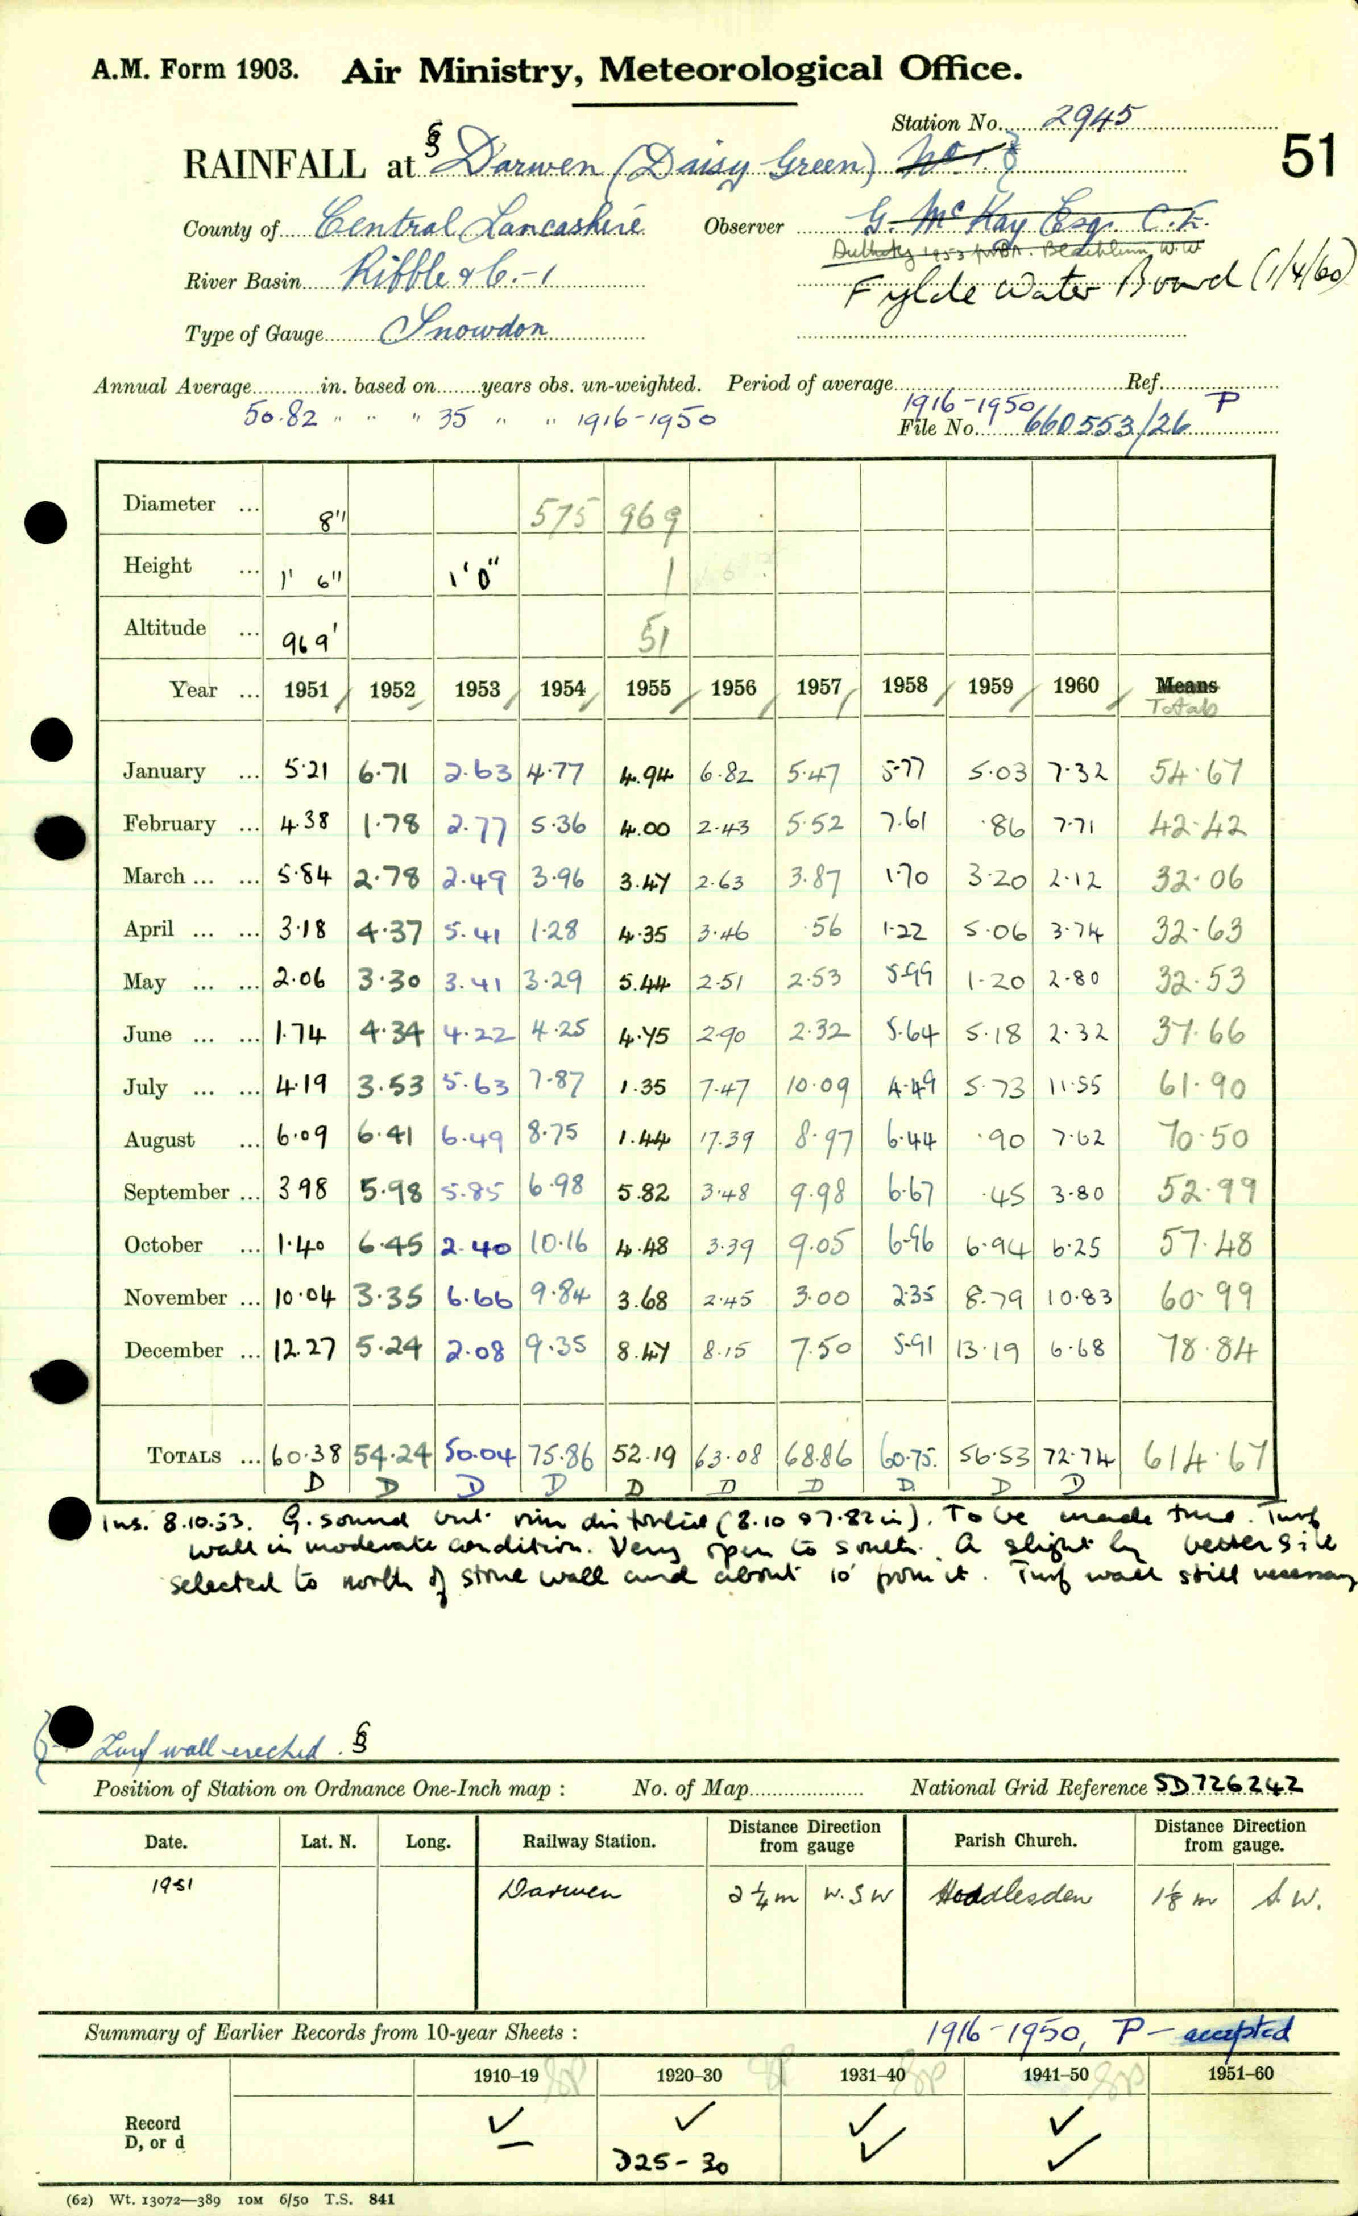 A.M. Form 1903. Air Ministry, Meteorological Office.
Station No. 2945
51
RAINFALL at § Darwen (Daisy Green) No. 1. §
County of Central Lancashire Observer G. McKay Esq. C.E.
1953 Blackburn W.W
River Basin Ribble &c.-1 Fylde Water Board (1/4/60)
Type of Gauge Snowdon
Annual Average in. based on years obs. un-weighted. Period of average 1916-1950 Ref. P
50.82 " " " 35 " " 1916-1950 File No. 660553/26
Diameter ... 8" 575 969
Height ... 1' 6" 1'0" 1
Altitude ... 969' 51
Year ... 1951 1952 1953 1954 1955 1956 1957 1958 1959 1960 Means
Totals
January ... 5.21 6.71 2.63 4.77 4.94 6.82 5.47 5.77 5.03 7.32 54.67
February ... 4.38 1.78 2.77 5.36 4.00 2.43 5.52 7.61 .86 7.71 42.42
March ... ... 5.84 2.78 2.49 3.96 3.47 2.63 3.87 1.70 3.20 2.12 32.06
April ... ... 3.18 4.37 5.41 1.28 4.35 3.46 .56 1.22 5.06 3.74 32.63
May ... ... 2.06 3.30 3.41 3.29 5.44 2.51 2.53 5.99 1.20 2.80 32.53
June ... ... 1.74 4.34 4.22 4.25 4.75 2.90 2.32 5.64 5.18 2.32 37.66
July ... ... 4.19 3.53 5.63 7.87 1.35 7.47 10.09 4.49 5.73 11.55 61.90
August ... 6.09 6.41 6.49 8.75 1.44 17.39 8.97 6.44 .90 7.62 70.50
September ... 3 98 5.98 5.85 6.98 5.82 3.48 9.98 6.67 .45 3.80 52.99
October ... 1.40 6.45 2.40 10.16 4.48 3.39 9.05 6.96 6.94 6.25 57.48
November ... 10.04 3.35 6.66 9.84 3.68 2.45 3.00 2.35 8.79 10.83 60.99
December ... 12.27 5.24 2.08 9.35 8.47 8.15 7.50 5.91 13.19 6.68 78.84
TOTALS ... 60.38 54.24 50.04 75.86 52.19 63.08 68.86 60.75. 56.53 72.74 614.67
D D D D D D D D D D
Ins. 8.10.53. G. sound but rim distorted (8.10 & 7.82 in). To be made true. Turf
wall in moderate condition. Very open to south. A slightly better site
selected to north of stone wall and about 10' from it. Turf wall still necessary
Turf wall erected. §
Position of Station on Ordnance One-Inch map : No. of Map National Grid Reference SD726242
Date. Lat. N. Long. Railway Station. Distance Direction from gauge Parish Church. Distance Direction from gauge.
1951 Darwen 2 1/4 m W.S W Hoddlesden 1 1/8 m S.W.
Summary of Earlier Records from 10-year Sheets : 1916-1950, P - accepted
1910–19 1920–30 1931–40 1941–50 1951–60
Record ✓ ✓ ✓ ✓
D, or d — D25-30 ✓ ✓
(62) Wt. 13072—389 IOM 6/50 T.S. 841